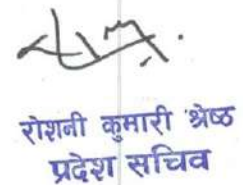 रोशनी कुमारी श्रेष्ठ
प्रदेश सचिव